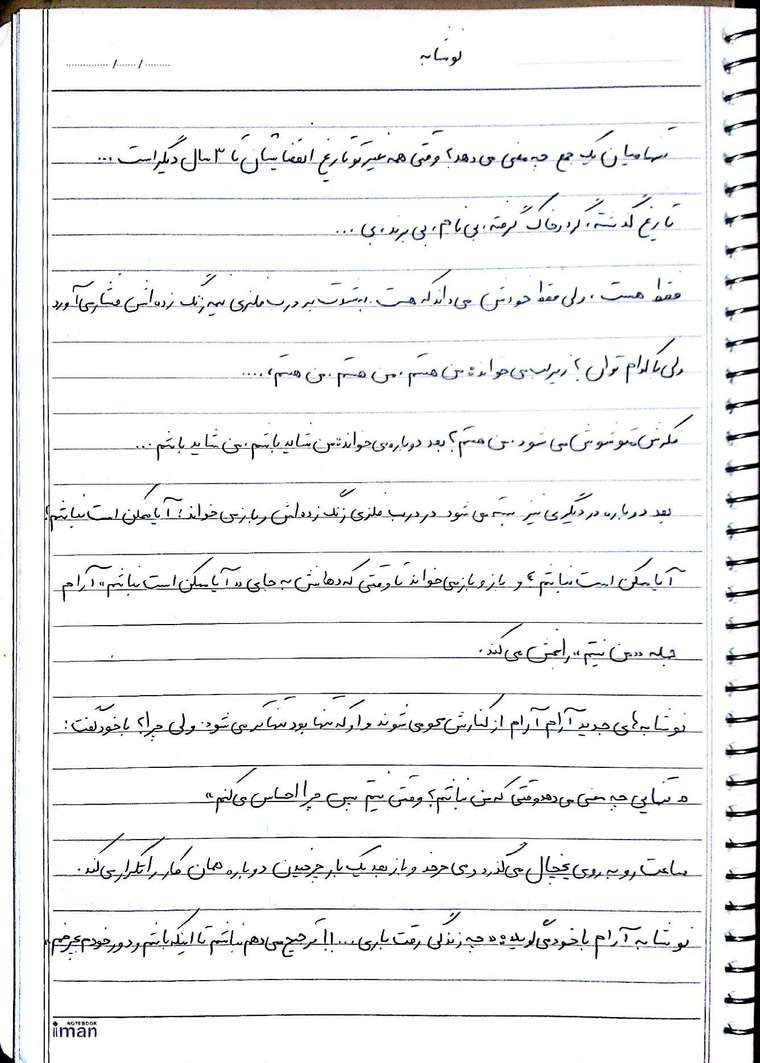 نوشابه
....../....../......
تنها میان یک جمع چه معنی می دهد؟ وقتی همه غیر تو تاریخ انقضایشان تا ۳ سال دیگر است ...
تاریخ گذشته، گرد و خاک گرفته، بی نام، بی برند، بی ...
فقط هست، ولی فقط خودش می داند که هست. به شدت به درب فلزی نیمه زنگ زده اش فشار می آورد
ولی با کدام توان؟ زیر لب می خواند: من هستم، من هستم، من هستم، ....
فکرش مشوش می شود. من هستم؟ بعد دوباره می خواند: من شاید باشم، من شاید باشم ...
بعد دوباره در دیگری نیز بسته می شود در درب فلزی زنگ زده اش و باز می خواند: آیا ممکن است نباشم؟
آیا ممکن است نباشم؟ و باز و باز می خواند تا وقتی که دهانش به جای «آیا ممکن است نباشم» آرام
جمله «من نیستم» را پخش می کند.
نوشابه های جدید آرام آرام از کنارش محو می شوند و او که تنها بود تنها تر می شود. ولی چرا؟ با خود گفت:
« تنهایی چه معنی می دهد وقتی که من نباشم؟ وقتی نیستم پس چرا احساس می کنم»
ساعت رو به روی یخچال می گذرد و می چرخد و باز بعد یک بار چرخیدن دوباره همان کار را تکرار می کند.
نوشابه آرام با خود می گوید: « چه زندگی رقت باری ... من ترجیح می دهم نباشم تا اینکه باشم و دور خودم بچرخم»
NOTEBOOK
iman